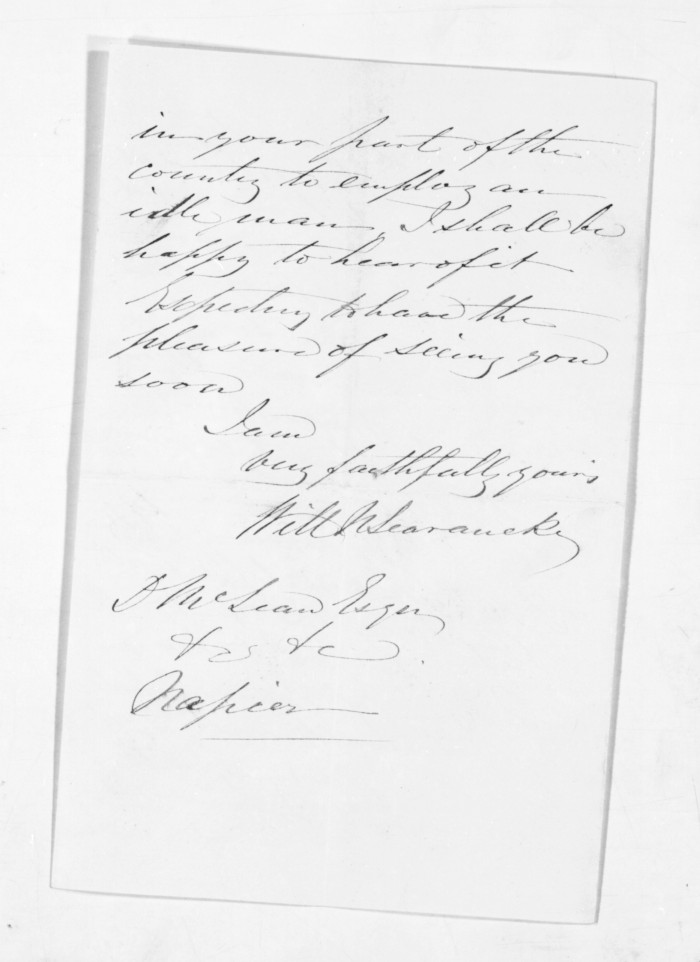 in your part of the
country to employ an
idle man, I shall be
happy to hear of it
Expecting to have the
pleasure of seeing you
soon
I am
very faithfully yours
Will N Searancke
D McLean Esqr
&c &c
Napier